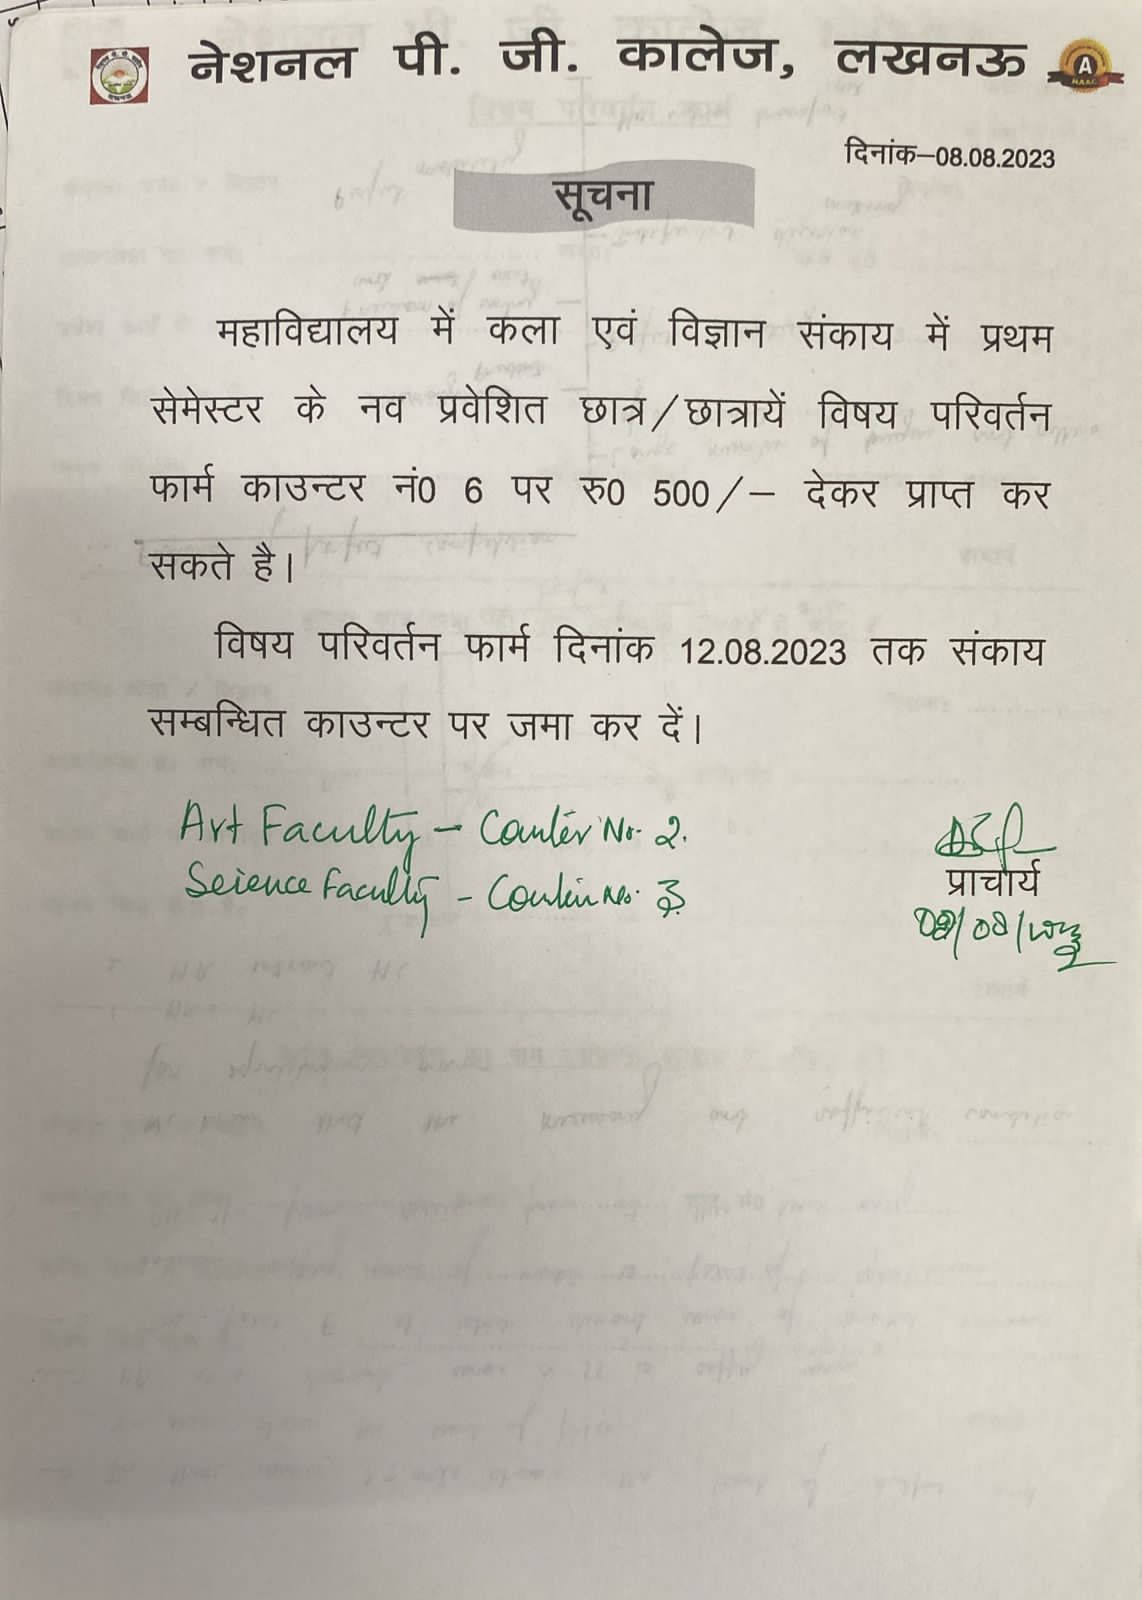 नेशनल पी. जी. कालेज, लखनऊ
A
NAAC
दिनांक–08.08.2023
सूचना
महाविद्यालय में कला एवं विज्ञान संकाय में प्रथम
सेमेस्टर के नव प्रवेशित छात्र/छात्रायें विषय परिवर्तन
फार्म काउन्टर नं0 6 पर रु0 500/– देकर प्राप्त कर
सकते है।
विषय परिवर्तन फार्म दिनांक 12.08.2023 तक संकाय
सम्बन्धित काउन्टर पर जमा कर दें।
Art Faculty – Counter No. 2.
Science Faculty – Counter No. 3
प्राचार्य